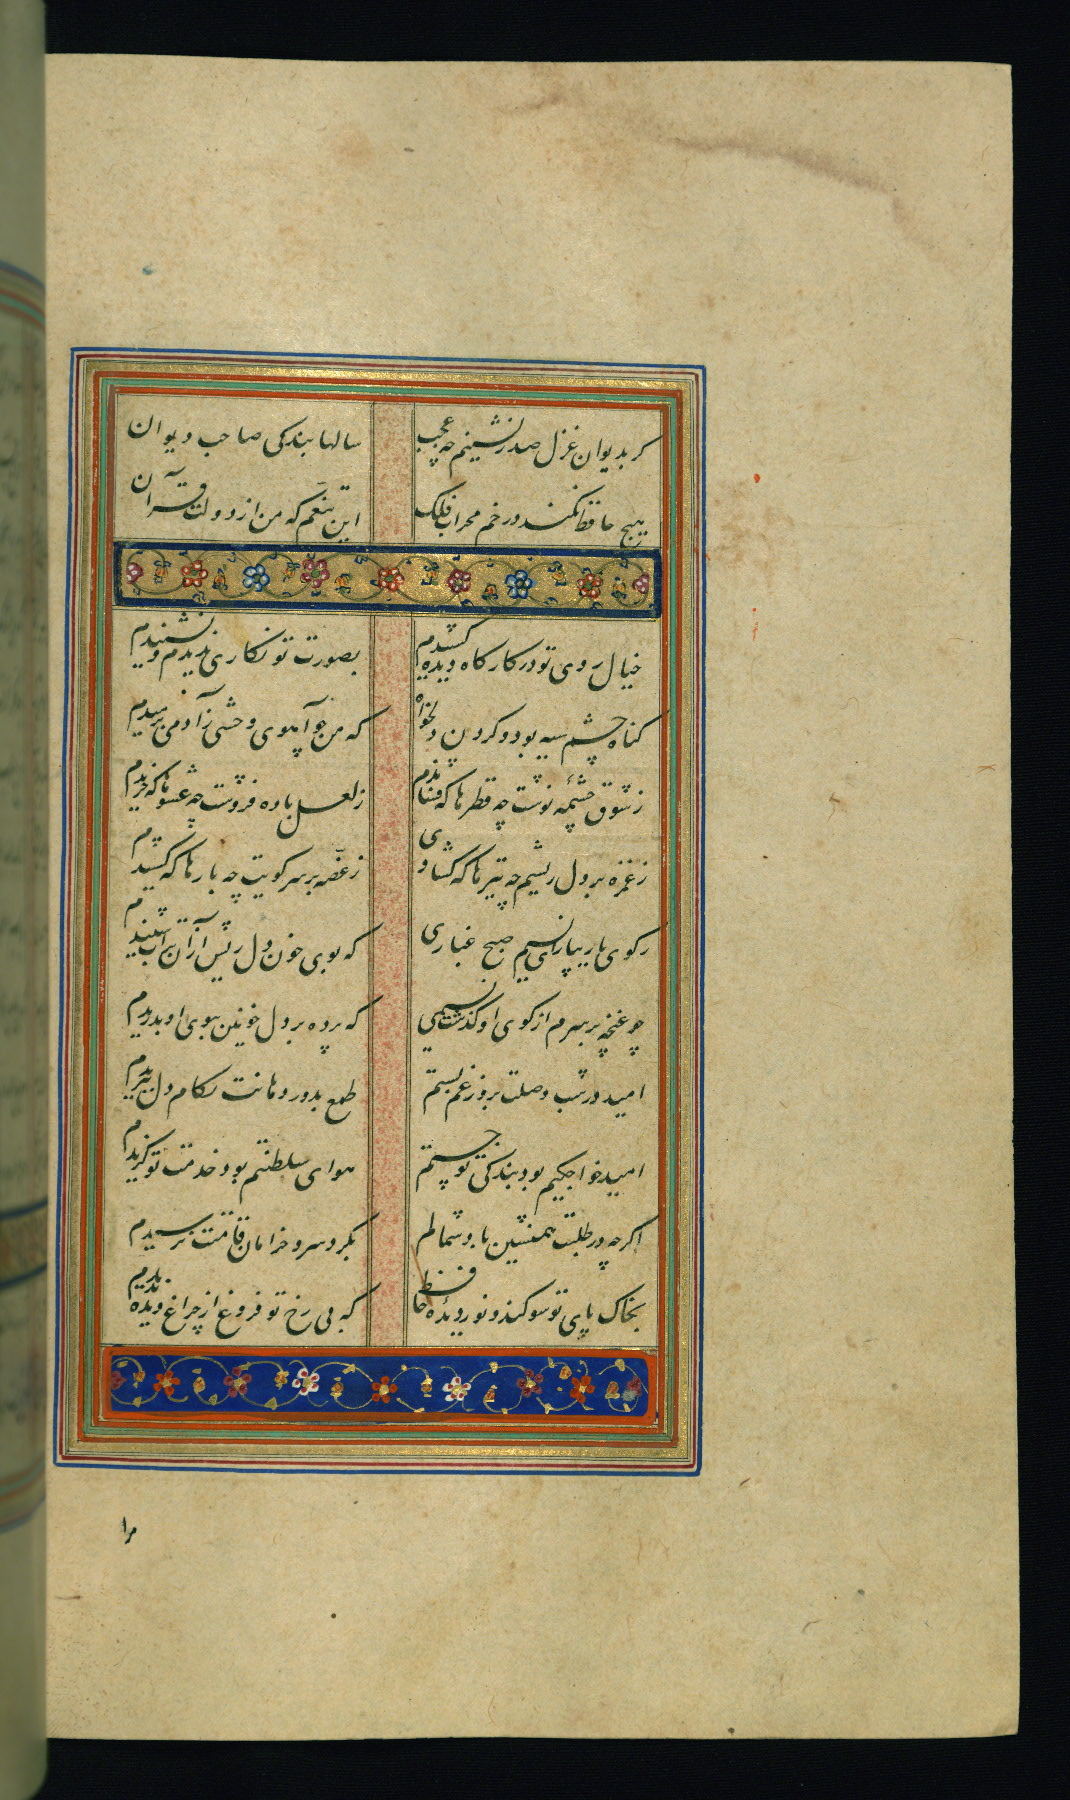 کر بدیوان غزل صدر نشینم چه عجب سالها بندکی صاحب دیوان
هیچ حافظ نکند در خم محراب فلک این تنعم که من از دولت قرآن
خیال روی تو در کارکاه دیده کشیدم بصورت تو نکاری ندیدم و نشنیدم
کناه چشم سیه بود و کردن دلخواه که من چو آهوی وحشی ز آدمی برمیدم
ز شوق چشمه نوشت چه قطرها که فشاندم ز لعل باده فروشت چه عشوها که خریدم
ز غمزه بر دل ریشم چه تیرها که کشادی ز غصه بر سر کویت چه بارها که کشیدم
ز کوی یار بیار ای نسیم صبح غباری که بوی خون دل ریش از آن تراب شنیدم
چو غنچه بر سرم از کوی او کذشت نسیمی که پرده بر دل خونین ببوی او بدریدم
امید در شب وصلت بروز غم بستم طمع بدور دهانت ز کام دل ببریدم
امید خواجکیم بود بندکی تو جستم هوای سلطنتم بود خدمت تو کزیدم
اکرچه در طلبت همنشین باد شمالم بکرد سرو خرامان قامتت نرسیدم
بخاک پای تو سوکند و نور دیده حافظ که بی رخ تو فروغ از چراغ دیده ندیدم
مرا